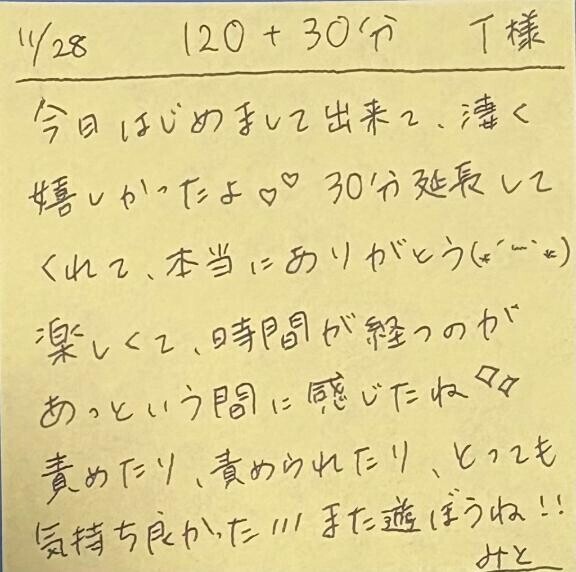 11/28 120+30分 T様
今日はじめまして出来て、凄く
嬉しかったよ♡♡ 30分延長して
くれて、本当にありがとう(*´︶`*)
楽しくて、時間が経つのが
あっという間に感じたね✧✧
責めたり、責められたり、とっても
気持ち良かった!!! また遊ぼうね!!
みと